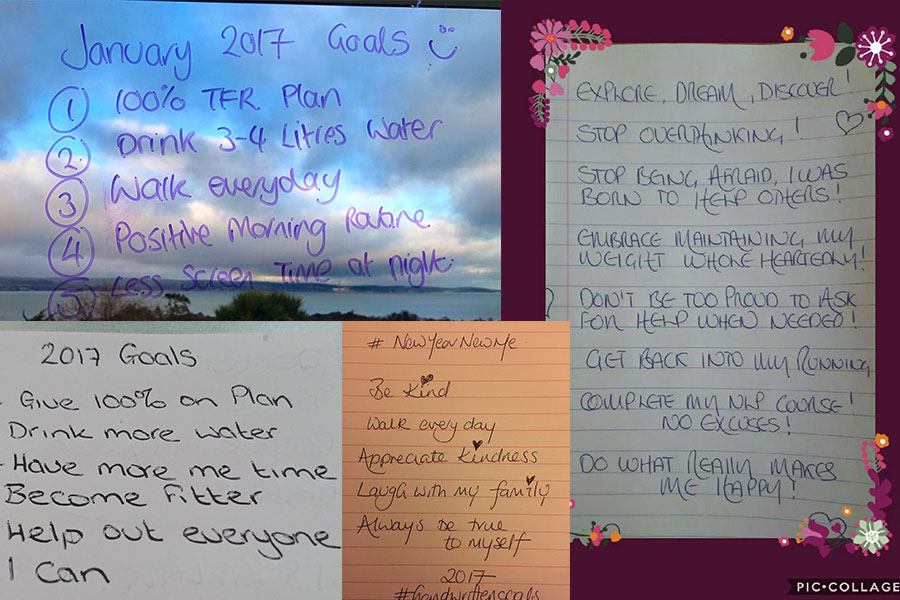 January 2017 Goals
1 100% TFR Plan
2. Drink 3-4 Litres Water
3 Walk everyday
4 Positive Morning Routine
5 Less Screen Time at night.
2017 Goals
- Give 100% on Plan
Drink more water
- Have more me time
Become Fitter
Help out everyone
I Can
# NewYearNewMe.
Be Kind
Walk every day
Appreciate Kindness
Laugh with my family
Always be true
to myself
2017
#handwrittengoals
EXPLORE, DREAM, DISCOVER!
STOP OVERTHINKING!
STOP BEING AFRAID, I WAS
BORN TO HELP OTHERS!
EMBRACE MAINTAINING MY
WEIGHT WHOLE HEARTEDLY!
DON'T BE TOO PROUD TO ASK
FOR HELP WHEN NEEDED!
GET BACK INTO MY RUNNING
COMPLETE MY NLP COURSE!
NO EXCUSES!
DO WHAT REALLY MAKES
ME HAPPY!
PIC•COLLAGE